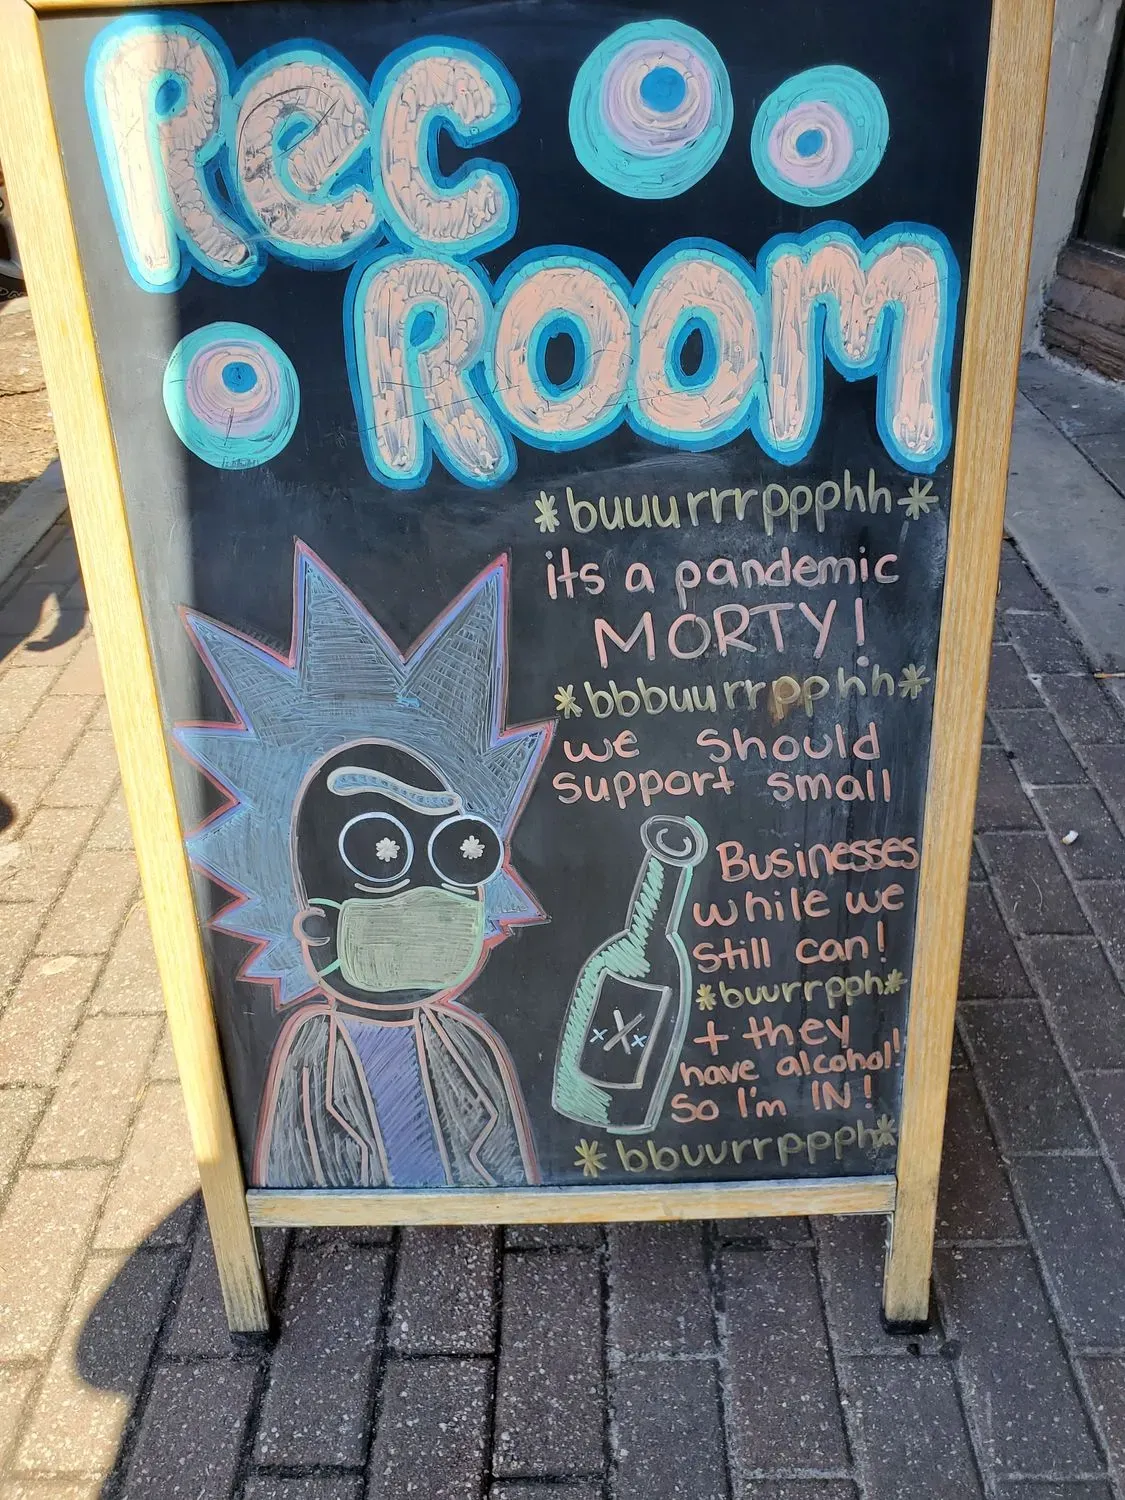 Rec
ROOM
*buuurrrppphh*
its a pandemic
MORTY!
*bbbuurrpphh*
we should
support small
Businesses
while we
still can!
*buurrpph*
+ they
have alcohol!
So I'm IN!
*bbuurrpppph*
xXx